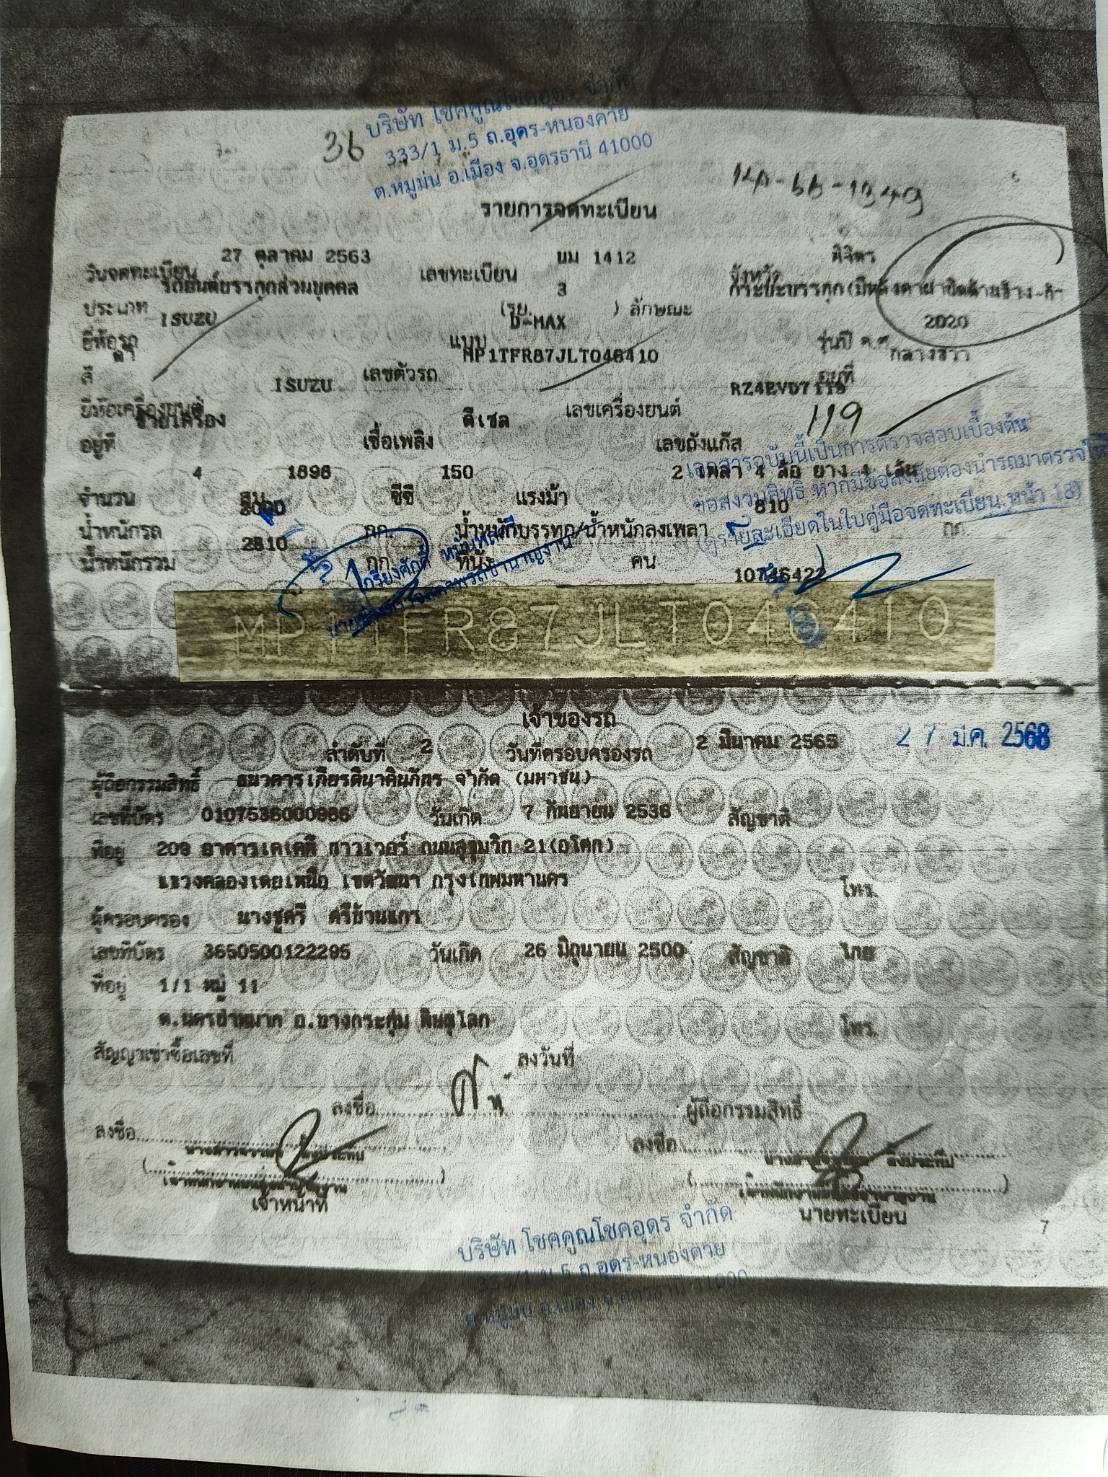 บริษัท โชคคูณโชคอุดร จำกัด
36 333/1 ม.5 ถ.อุดร-หนองคาย
ต.หมูม่น อ.เมือง จ.อุดรธานี 41000
รายการจดทะเบียน
วันจดทะเบียน 27 ตุลาคม 2563 เลขทะเบียน บม 1412 จังหวัด พิจิตร
ประเภท รถยนต์บรรทุกส่วนบุคคล (รย. 3 ) ลักษณะ กระบะบรรทุก
ยี่ห้อรถ ISUZU แบบ D-MAX รุ่นปี ค.ศ. 2020
สี เลขตัวรถ MP1TFR87JLT046410 อยู่ที่
ยี่ห้อเครื่องยนต์ ISUZU เลขเครื่องยนต์
อยู่ที่ เชื้อเพลิง ดีเซล เลขถังแก๊ส 119
จำนวน 4 สูบ 1898 ซีซี 150 แรงม้า 2 เพลา 4 ล้อ ยาง 4 เส้น
น้ำหนักรถ กก. น้ำหนักบรรทุก/น้ำหนักลงเพลา 810 กก.
น้ำหนักรวม 2810 กก. ที่นั่ง คน
เอกสารฉบับนี้เป็นการตรวจสอบเบื้องต้น
ขอสงวนสิทธิ์ หากมีข้อสงสัยต้องนำรถมาตรวจ
(ดูรายละเอียดในใบคู่มือจดทะเบียน หน้า 18)
MP1TFR87JLT046410
เจ้าของรถ
ลำดับที่ 2 วันที่ครอบครองรถ 2 มีนาคม 2565 27 มี.ค. 2568
ผู้ถือกรรมสิทธิ์ ธนาคารเกียรตินาคินภัทร จำกัด (มหาชน)
เลขที่บัตร 0107536000986 วันเกิด 7 กันยายน 2536 สัญชาติ
ที่อยู่ 209 อาคารเคเคพี ทาวเวอร์ ถนนสุขุมวิท 21(อโศก)
แขวงคลองเตยเหนือ เขตวัฒนา กรุงเทพมหานคร โทร.
ผู้ครอบครอง นางชูศรี
เลขที่บัตร 3650500122295 วันเกิด 26 มิถุนายน 2500 สัญชาติ ไทย
ที่อยู่ 1/1 หมู่ 11
ต.นครป่าหมาก อ.บางกระทุ่ม พิษณุโลก โทร.
สัญญาเช่าซื้อเลขที่ ลงวันที่
ลงชื่อ ผู้ถือกรรมสิทธิ์
ลงชื่อ ลงชื่อ
เจ้าหน้าที่ นายทะเบียน
7
บริษัท โชคคูณโชคอุดร จำกัด
333/1 ม.5 ถ.อุดร-หนองคาย